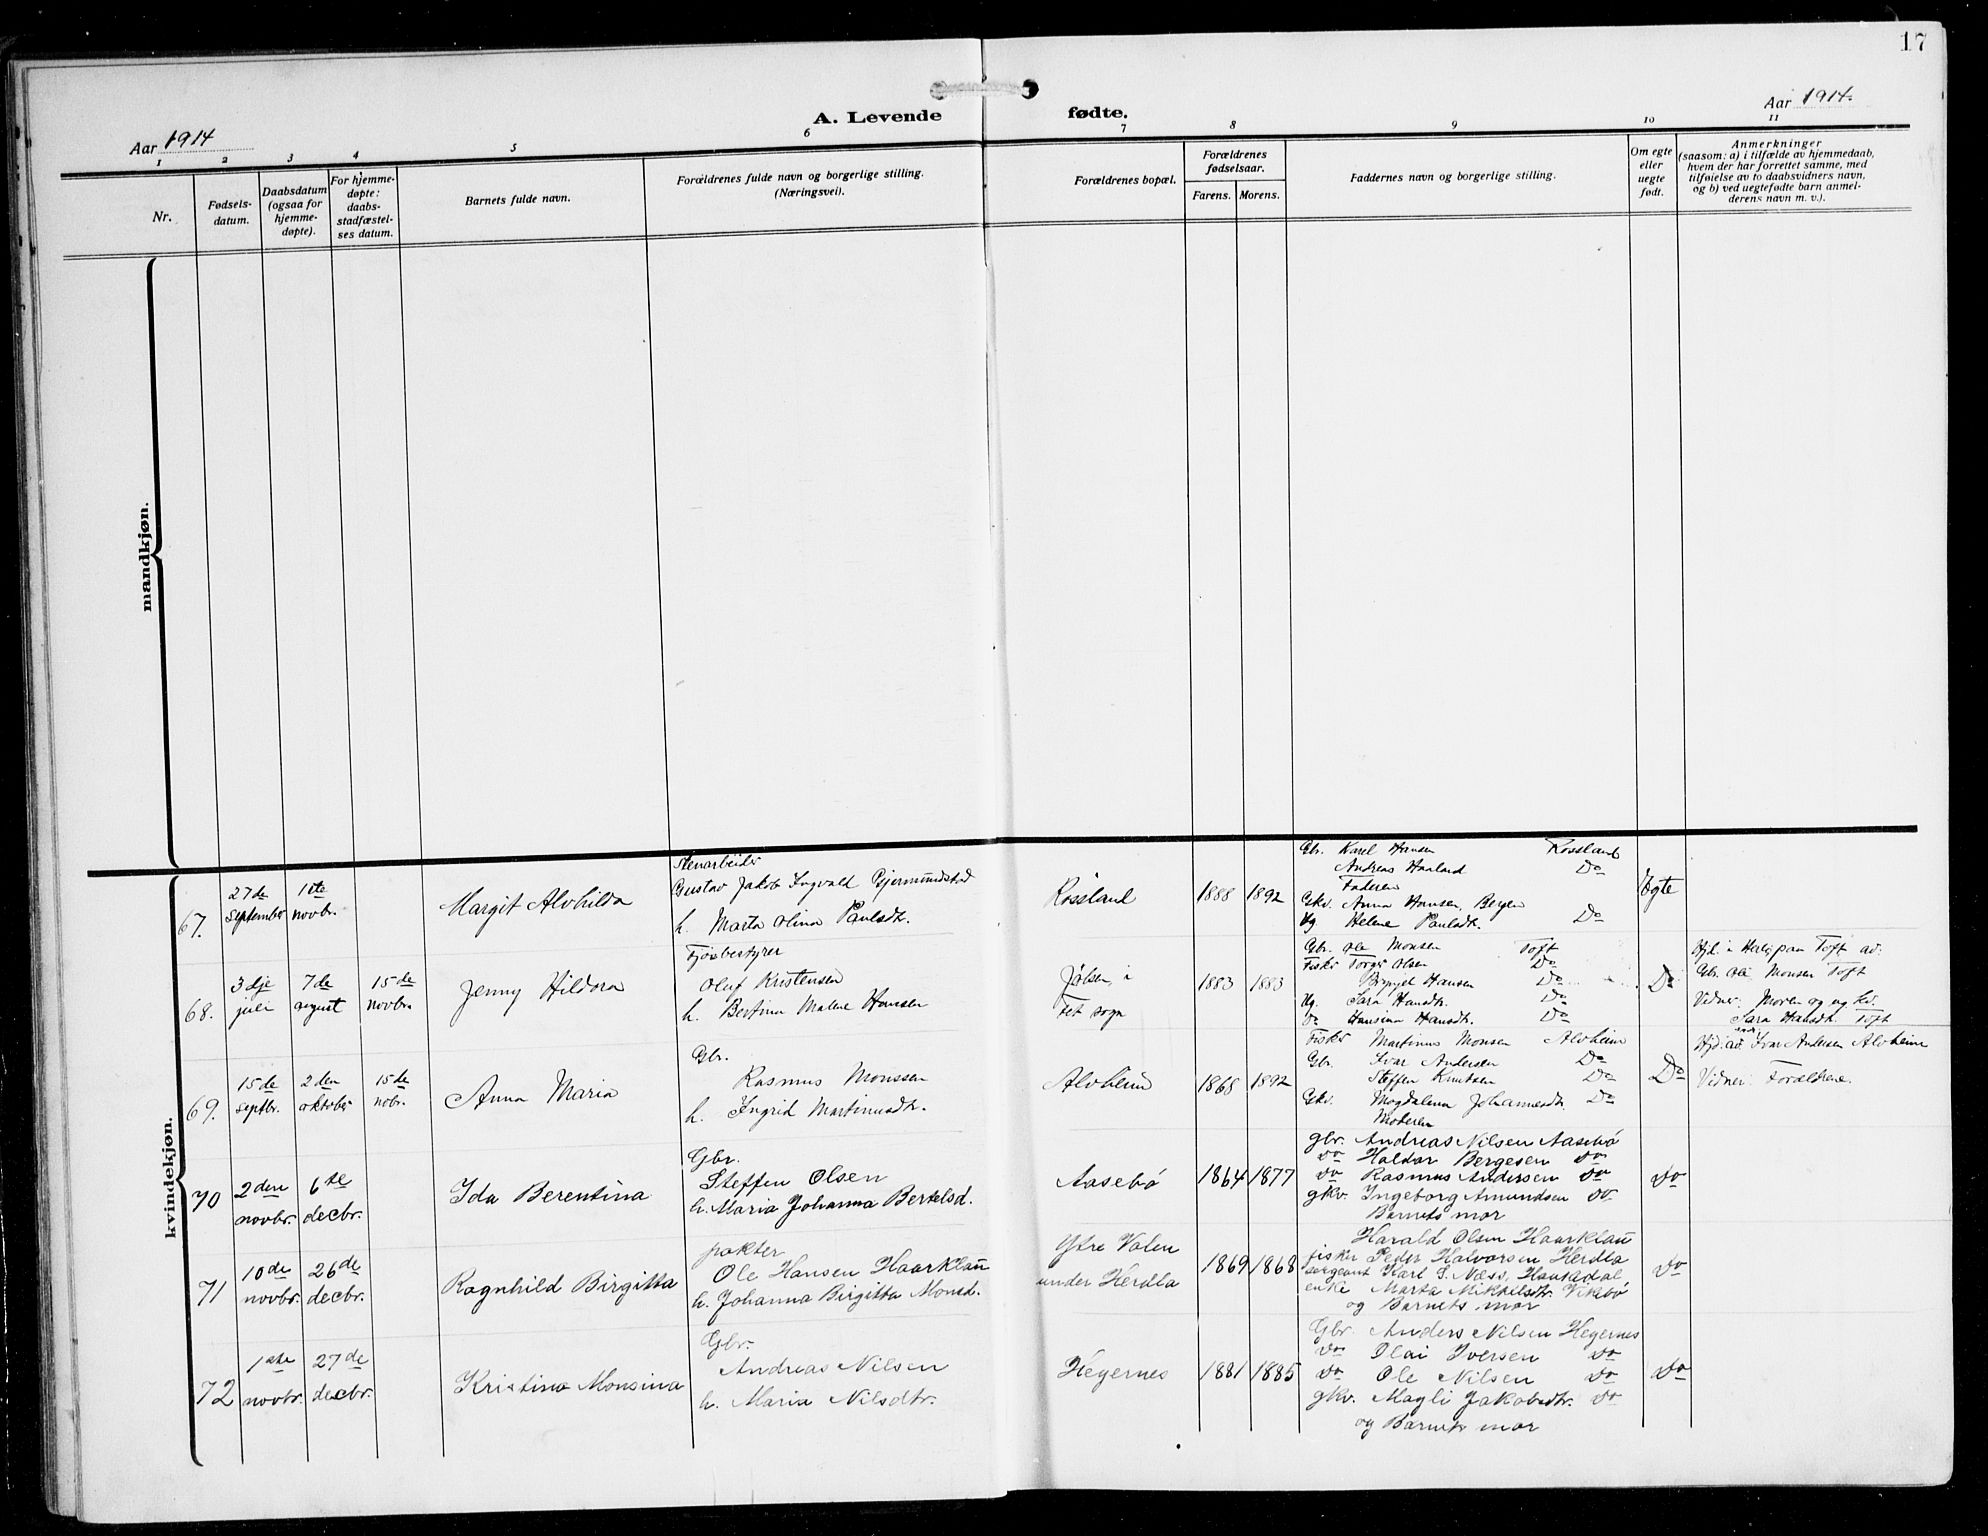 17
Aar 1914
A. Levende fødte.
Aar 1914.
1 2 3 4 5 6 7 8 9 10 11
Nr.
Fødsels-
datum.
Daabsdatum
(ogsaa for
hjemme-
døpte).
For hjemme-
døpte:
daabs-
stadfæstel-
ses datum.
Barnets fulde navn.
Forældrenes fulde navn og borgerlige stilling.
(Næringsvei).
Forældrenes bopæl.
Forældrenes
fødselsaar.
Farens. Morens.
Faddernes navn og borgerlige stilling.
Om egte
eller
uegte
født.
Anmerkninger
(saasom: a) i tilfælde av hjemmedaab,
hvem der har forrettet samme, med
tilføielse av to daabsvidners navn,
og b) ved uegtefødte barn anmel-
derens navn m. v.).
mandkjøn.
kvindekjøn.
67.
27de
september
1ste
novbr.
Margit Alvhilda
Stenarbeider
Gustav Jakob Ingvald Gjermundstad
h. Marta Olina Paulsdtr.
Rossland
1888 1892
Gbr. Karl Hansen Rossland
Andreas Haaland Do
Faderen
Gkv. Anna Hansen, Bergen
Ug. Helene Paulsdtr. Do
Egte
68.
3dje
juli
7de
august
15de
novbr.
Jenny Hildora
Fjøsbestyrer
Oluf Kristensen
h. Bertina Malene Hansen
Jølsen i
Fet sogn
1883 1883
Gbr. Ole Monsen Toft
Fisker Torger Olsen Do
Brynjel Hansen Do
Ug. Sara Hansdtr. Do
Do Hansina Hansdtr. Do
Do
Hjd. i Helg. paa Toft av:
Gbr. Ole Monsen Toft
Vidner: Moren og ug. kv.
Sara Hansdtr. Toft
69.
15de
septbr.
2den
oktober
15de
nobr.
Anna Maria
Gbr.
Rasmus Monssen
h. Ingrid Martinusdtr.
Alvheim
1868 1892
Fisker Martinus Monsen Alvheim
Gbr. Ivar Andersen Do
Steffen Knutsen Do
Gkv. Magdalena Johannesdtr. Do
Moderen
Do
Hjd. av Ivar Andersen Alvheim
Vidner: Forældrene.
70
2den
novbr.
6te
decbr.
Ida Berentina
Gbr.
Steffen Olsen
h. Maria Johanna Bertelsd.
Aasebø
1864 1877
gbr. Andreas Nilsen Aasebø
do Haldor Bergesen do
do Rasmus Andersen do
gkv. Ingeborg Amundsen do
Barnets mor
do
71
10de
novbr.
26de
decbr.
Ragnhild Birgitta
pakter
Ole Hansen Haarklau
h. Johanna Birgitta Monsd.
Ytre Valen
under Herdla
1869 1868
Harald Olsen Haarklau
fisker Peder Halvorsen Herdla
sergeant Karl S. Næss, Hausdal,
enke Marta Mikkelsdtr. Vikebø
og Barnets mor
do
72
1ste
novbr.
27de
decbr.
Kristina Monsina
Gbr.
Andreas Nilsen
h. Maria Nilsdtr.
Hegernes
1881 1885
Gbr. Anders Nilsen Hegernes
do Olai Iversen do
do Ole Nilsen do
gkv. Magli Jakobsdtr. do
og Barnets mor
do